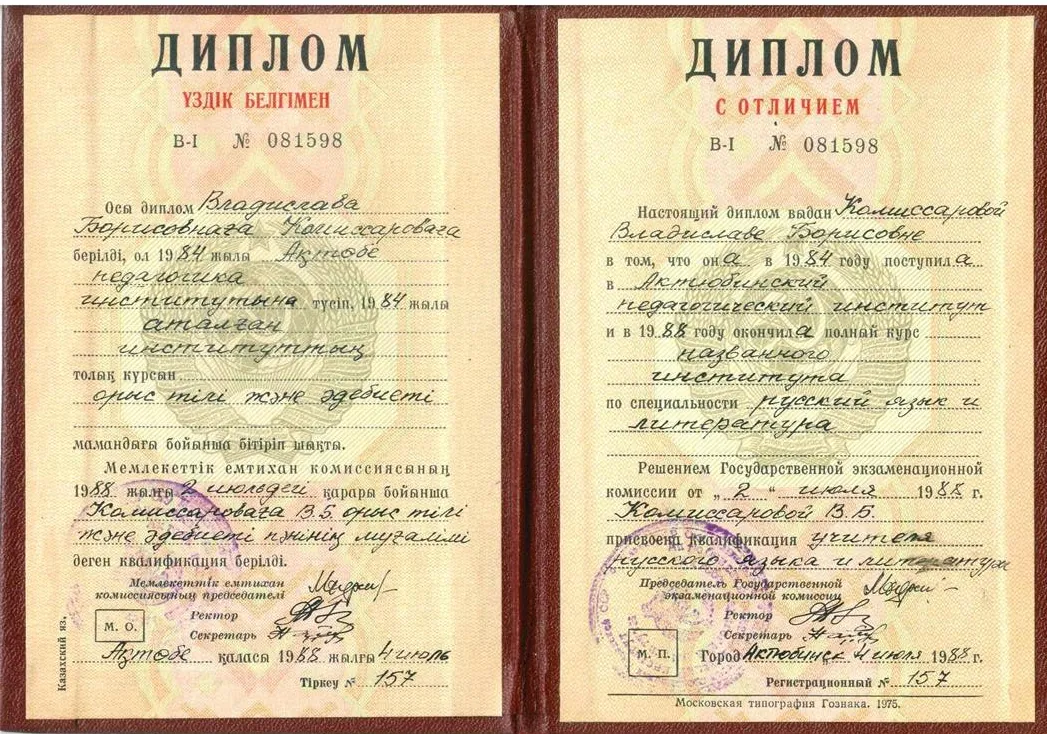 ДИПЛОМ
ҮЗДІК БЕЛГІМЕН
В-I № 081598
Осы диплом Владислава
Борисовнаға Комиссароваға
берілді, ол 1984 жылы Ақтөбе
педагогика
институтына түсіп, 1984 жылы
аталған
институттың
толық курсын
орыс тілі және әдебиеті
мамандығы бойынша бітіріп шықты.
Мемлекеттік емтихан комиссиясының
1988 жылғы 2 июльдегі қарары бойынша
Комиссароваға В.Б. орыс тілі
және әдебиеті пәнінің мұғалімі
деген квалификация берілді.
Мемлекеттік емтихан
комиссиясының председателі
Ректор
М. О.
Секретарь
Ақтөбе қаласы 1988 жылғы 4 июль
Тіркеу № 157
Казахский яз.
ДИПЛОМ
С ОТЛИЧИЕМ
В-I № 081598
Настоящий диплом выдан Комиссаровой
Владиславе Борисовне
в том, что она в 1984 году поступила
в Актюбинский
педагогический институт
и в 1988 году окончила полный курс
названного
института
по специальности русский язык и
литература
Решением Государственной экзаменационной
комиссии от „2“ июля 1988 г.
Комиссаровой В.Б.
присвоена квалификация учителя
русского языка и литературы
Председатель Государственной
экзаменационной комиссии
Ректор
Секретарь
М. П.
Город Актюбинск 4 июля 1988 г.
Регистрационный № 157
Московская типография Гознака. 1975.